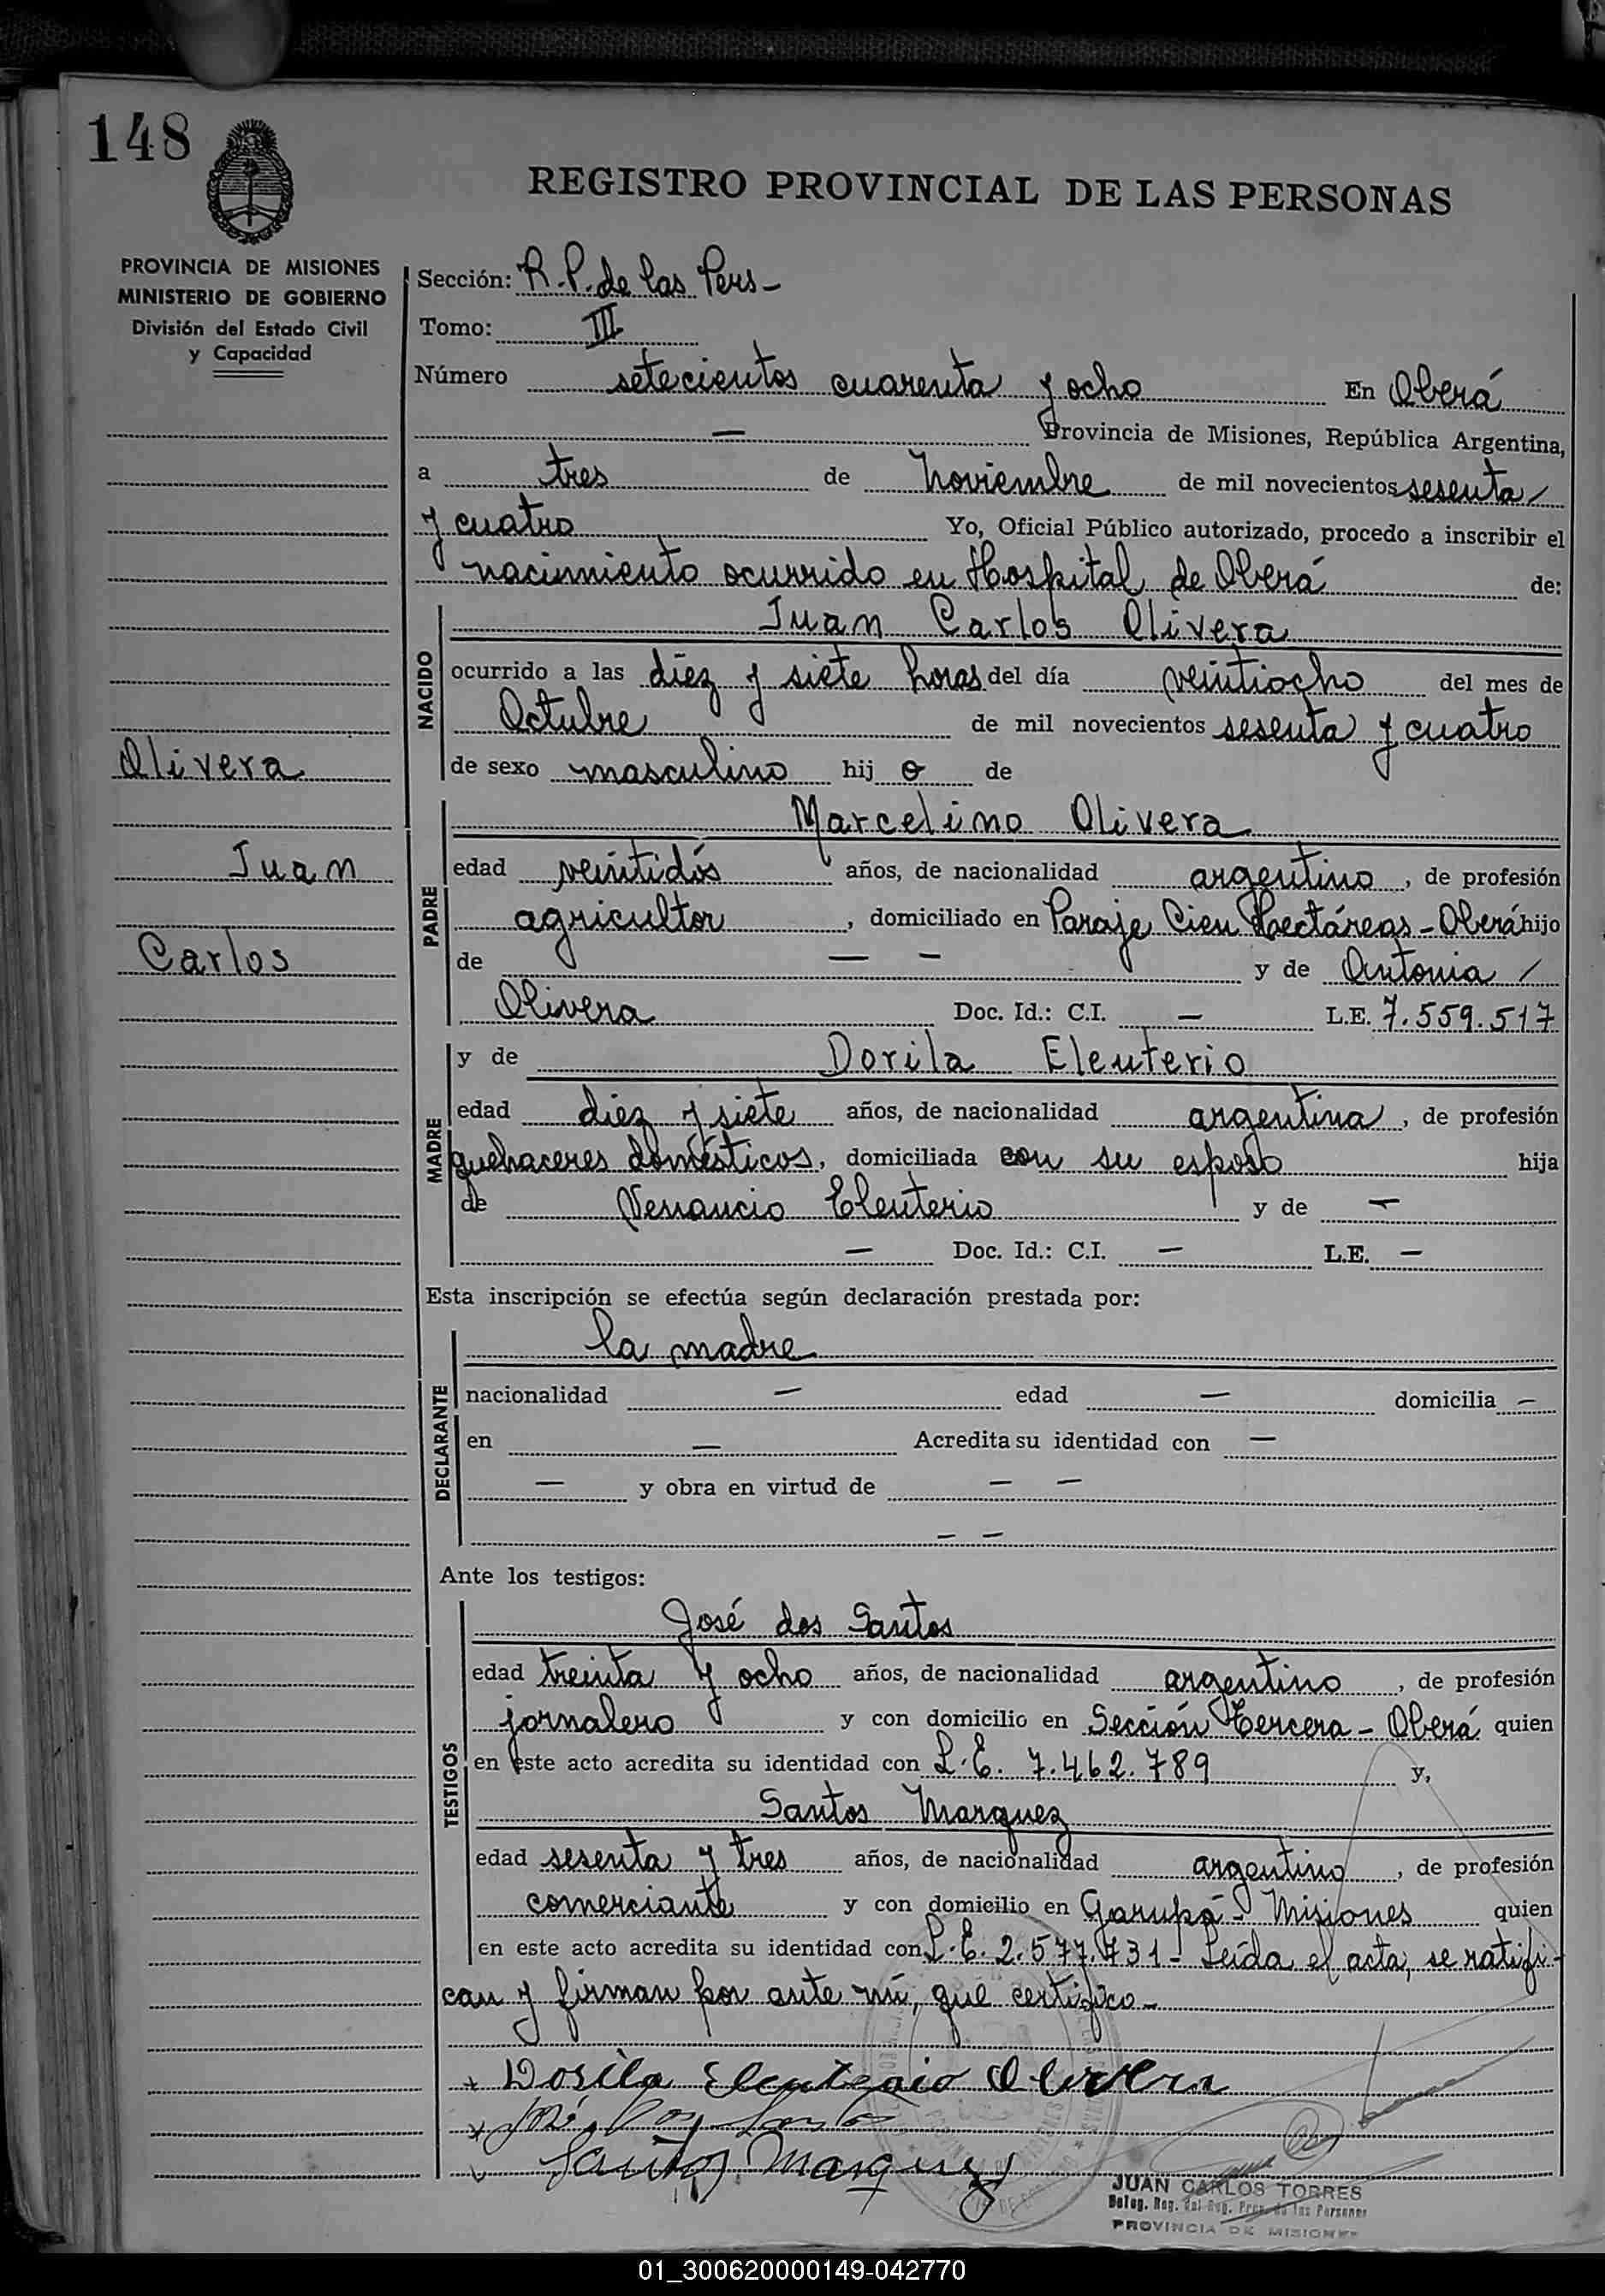 148
REGISTRO PROVINCIAL DE LAS PERSONAS
PROVINCIA DE MISIONES
MINISTERIO DE GOBIERNO
División del Estado Civil
y Capacidad
Sección: R.P. de las Pers-
Tomo: III
Número setecientos cuarenta y ocho En Oberá
— Provincia de Misiones, República Argentina,
a tres de Noviembre de mil novecientos sesenta/
y cuatro Yo, Oficial Público autorizado, procedo a inscribir el
nacimiento ocurrido en Hospital de Oberá de:
NACIDO
Juan Carlos Olivera
ocurrido a las diez y siete horas del día veintiocho del mes de
Octubre de mil novecientos sesenta y cuatro
Olivera
de sexo masculino hijo de
PADRE
Marcelino Olivera
Juan
edad veintidós años, de nacionalidad argentino, de profesión
agricultor, domiciliado en Paraje Cien Hectáreas - Oberá hijo
Carlos
de — — y de Antonia /
Olivera Doc. Id.: C.I. — L.E. 7.559.517
MADRE
y de Dorila Eleuterio
edad diez y siete años, de nacionalidad argentina, de profesión
quehaceres domésticos, domiciliada con su esposo hija
de Venancio Eleuterio y de —
— Doc. Id.: C.I. — L.E. —
Esta inscripción se efectúa según declaración prestada por:
DECLARANTE
la madre
nacionalidad — edad — domicilia —
en — Acredita su identidad con —
— y obra en virtud de — —
— —
Ante los testigos:
TESTIGOS
José dos Santos
edad treinta y ocho años, de nacionalidad argentino, de profesión
jornalero y con domicilio en Sección Tercera - Oberá quien
en este acto acredita su identidad con L.E. 7.462.789 y,
Santos Marquez
edad sesenta y tres años, de nacionalidad argentino, de profesión
comerciante y con domicilio en Garupá - Misiones quien
en este acto acredita su identidad con L.E. 2.577.731 - Leída el acta, se ratifi-
can y firman por ante mí, que certifico-
Dorila Eleuterio Olivera
José Dos Santos
Santos Marquez
JUAN CARLOS TORRES
Deleg. Reg. del Reg. Prov. de las Personas
PROVINCIA DE MISIONES
01_300620000149-042770